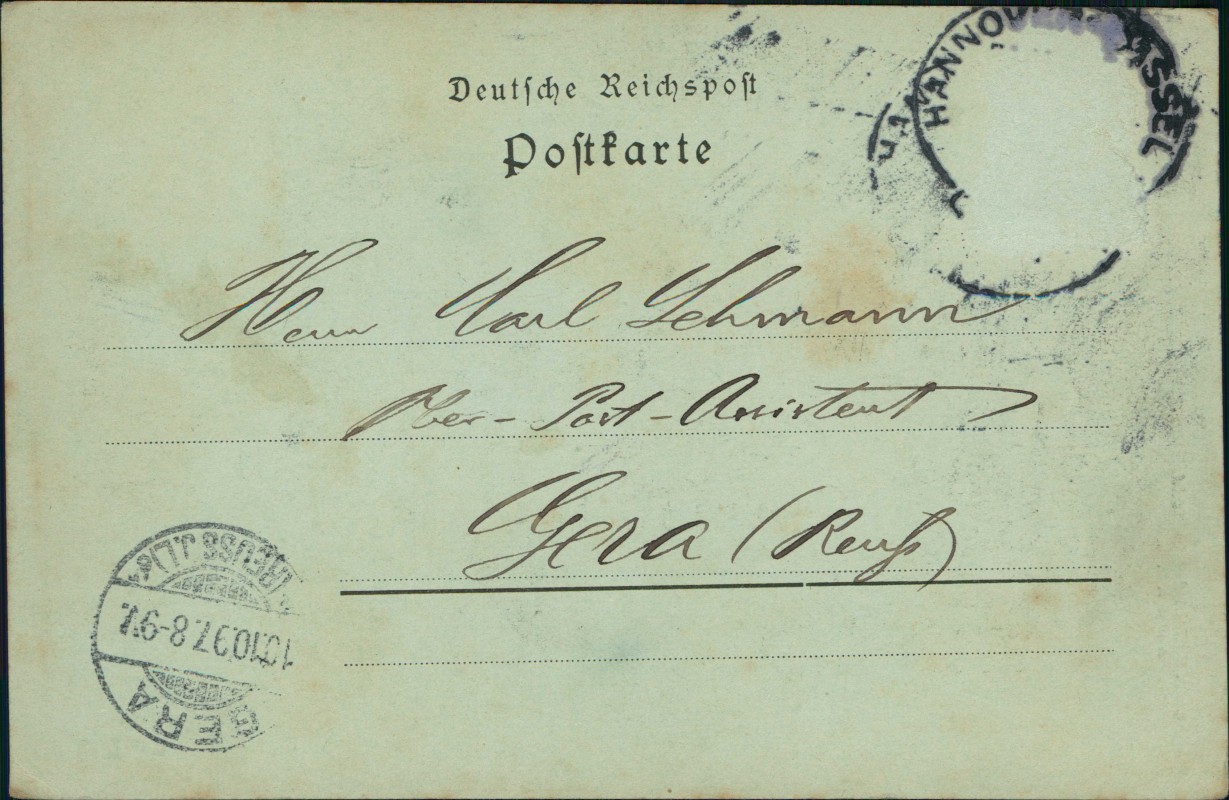 Deutsche Reichspost
Postkarte
HANNOV
SSEL
Herrn Carl Lehmann
Ober-Post-Assistent
Gera (Reuß)
(REUSS J.L.)
10.10.97. 8-9V.
GERA